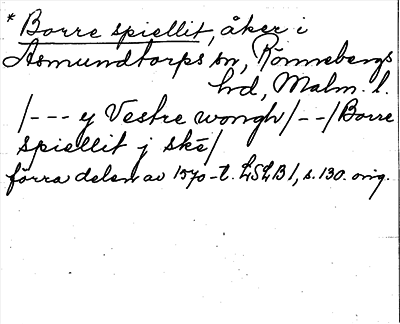 * Borre spiellit, åker i
Asmundtorps sn, Rönnebergs
hd, Malm. l.
/--- y Vestre wongh/--/Borre
spiellit j skē/
förra delen av 1570-t. LSLB1, s. 130. orig.